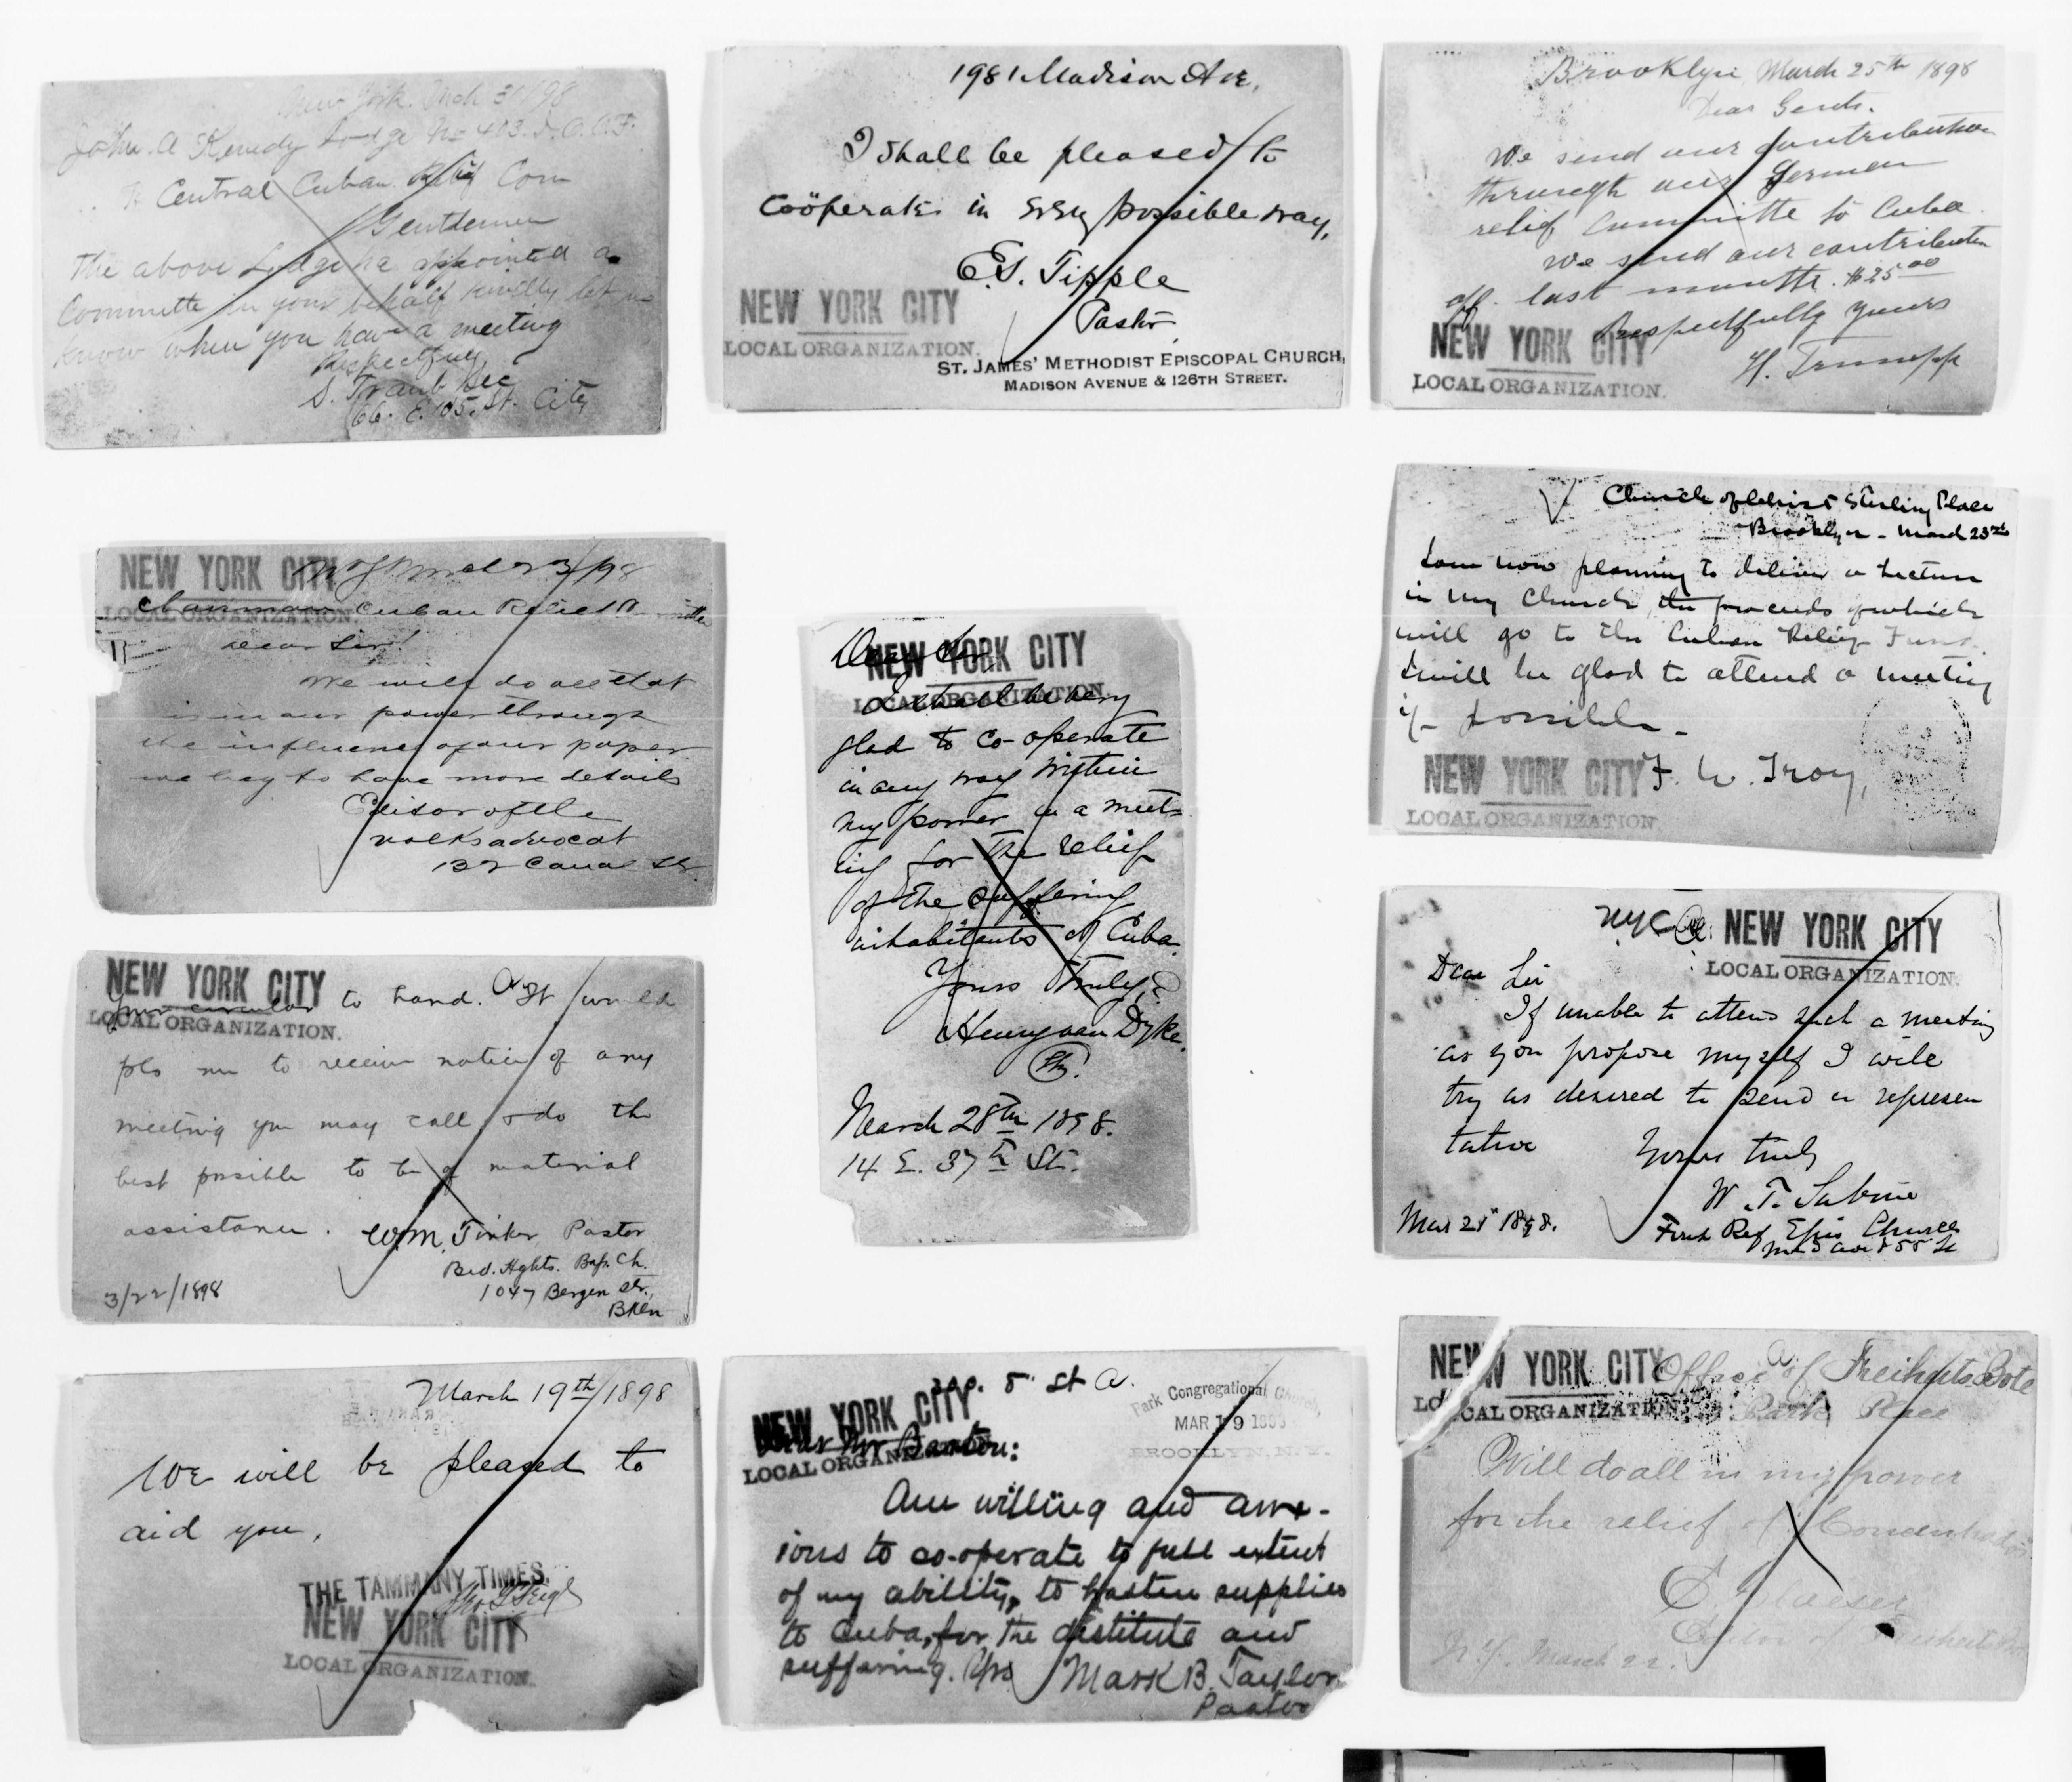 New York. Mch 31/98
John. A Kenedy Lodge No 403. I.O.O.F.
Central Cuban Relief Com
Gentlemen
The above Lodge has appointed a
Committe in your behalf kindly let us
know when you have a meeting
Respectfully
S. Traub Sec
66. E. 105. St. City
1981 Madison Ave.
I shall be pleased to
coöperate in every possible way.
E.S. Tipple
Pastor
NEW YORK CITY
LOCAL ORGANIZATION.
ST. JAMES' METHODIST EPISCOPAL CHURCH,
MADISON AVENUE & 126TH STREET.
Brooklyn March 25th 1898
Dear Gents.
We send our contribution
through our German
relief Committe to Cuba.
We send our contribution
off last month. $25.00
Respectfully yours
NEW YORK CITY
LOCAL ORGANIZATION.
H.
NEW YORK CITY
LOCAL ORGANIZATION.
NY March 23/98
Chairman Cuban Relief
Dear Sir!
We will do all that
is in our power through
the influence of our paper
we beg to have more details
Editor of the
Volksadvocat
132 Canal St.
Church of Christ Sterling Place
Brooklyn - March 23rd
I am now planning to deliver a lecture
in my Church, the proceeds of which
will go to the Cuban Relief Fund.
I will be glad to attend a meeting
if possible -
F. W. Troy,
NEW YORK CITY
LOCAL ORGANIZATION.
Dear Sir
NEW YORK CITY
LOCAL ORGANIZATION.
I shall be very
glad to co-operate
in any way within
my power in a meet-
ing for the relief
of the suffering
inhabitants of Cuba.
Yours Truly,
Henry van Dyke.
March 28th 1898.
14 E. 37th St.
NEW YORK CITY
LOCAL ORGANIZATION.
Your circular to hand. It would
pls me to receive notice of any
meeting you may call & do the
best possible to be of material
assistance. Wm. Tinker Pastor
Bed. Hghts. Bap. Ch.
1047 Bergen St.,
Bkln
3/22/1898
NYC NEW YORK CITY
LOCAL ORGANIZATION.
Dear Sir
If unable to attend such a meeting
as you propose myself I will
try as desired to send a represen
tative
Yours truly
W. T. Sabine
Mar 21st 1898.
First Ref Epis Church
Mad Ave & 55 St
March 19th/1898
We will be pleased to
aid you.
THE TAMMANY TIMES.
NEW YORK CITY
LOCAL ORGANIZATION.
8th St A.
Park Congregational Church,
MAR 19 1898
BROOKLYN, N.Y.
NEW YORK CITY
LOCAL ORGANIZATION.
Dear Mr Barton:
Am willing and anx-
ious to co-operate to full extent
of my ability, to hasten supplies
to Cuba, for the destitute and
suffering. Yrs Mark B. Taylor
Pastor
NEW YORK CITY
LOCAL ORGANIZATION.
Office of Freiheits Bote
Park Place
Will do all in my power
for the relief of
E Maeser
Editor of Freiheits Bote
N.Y. March 22.